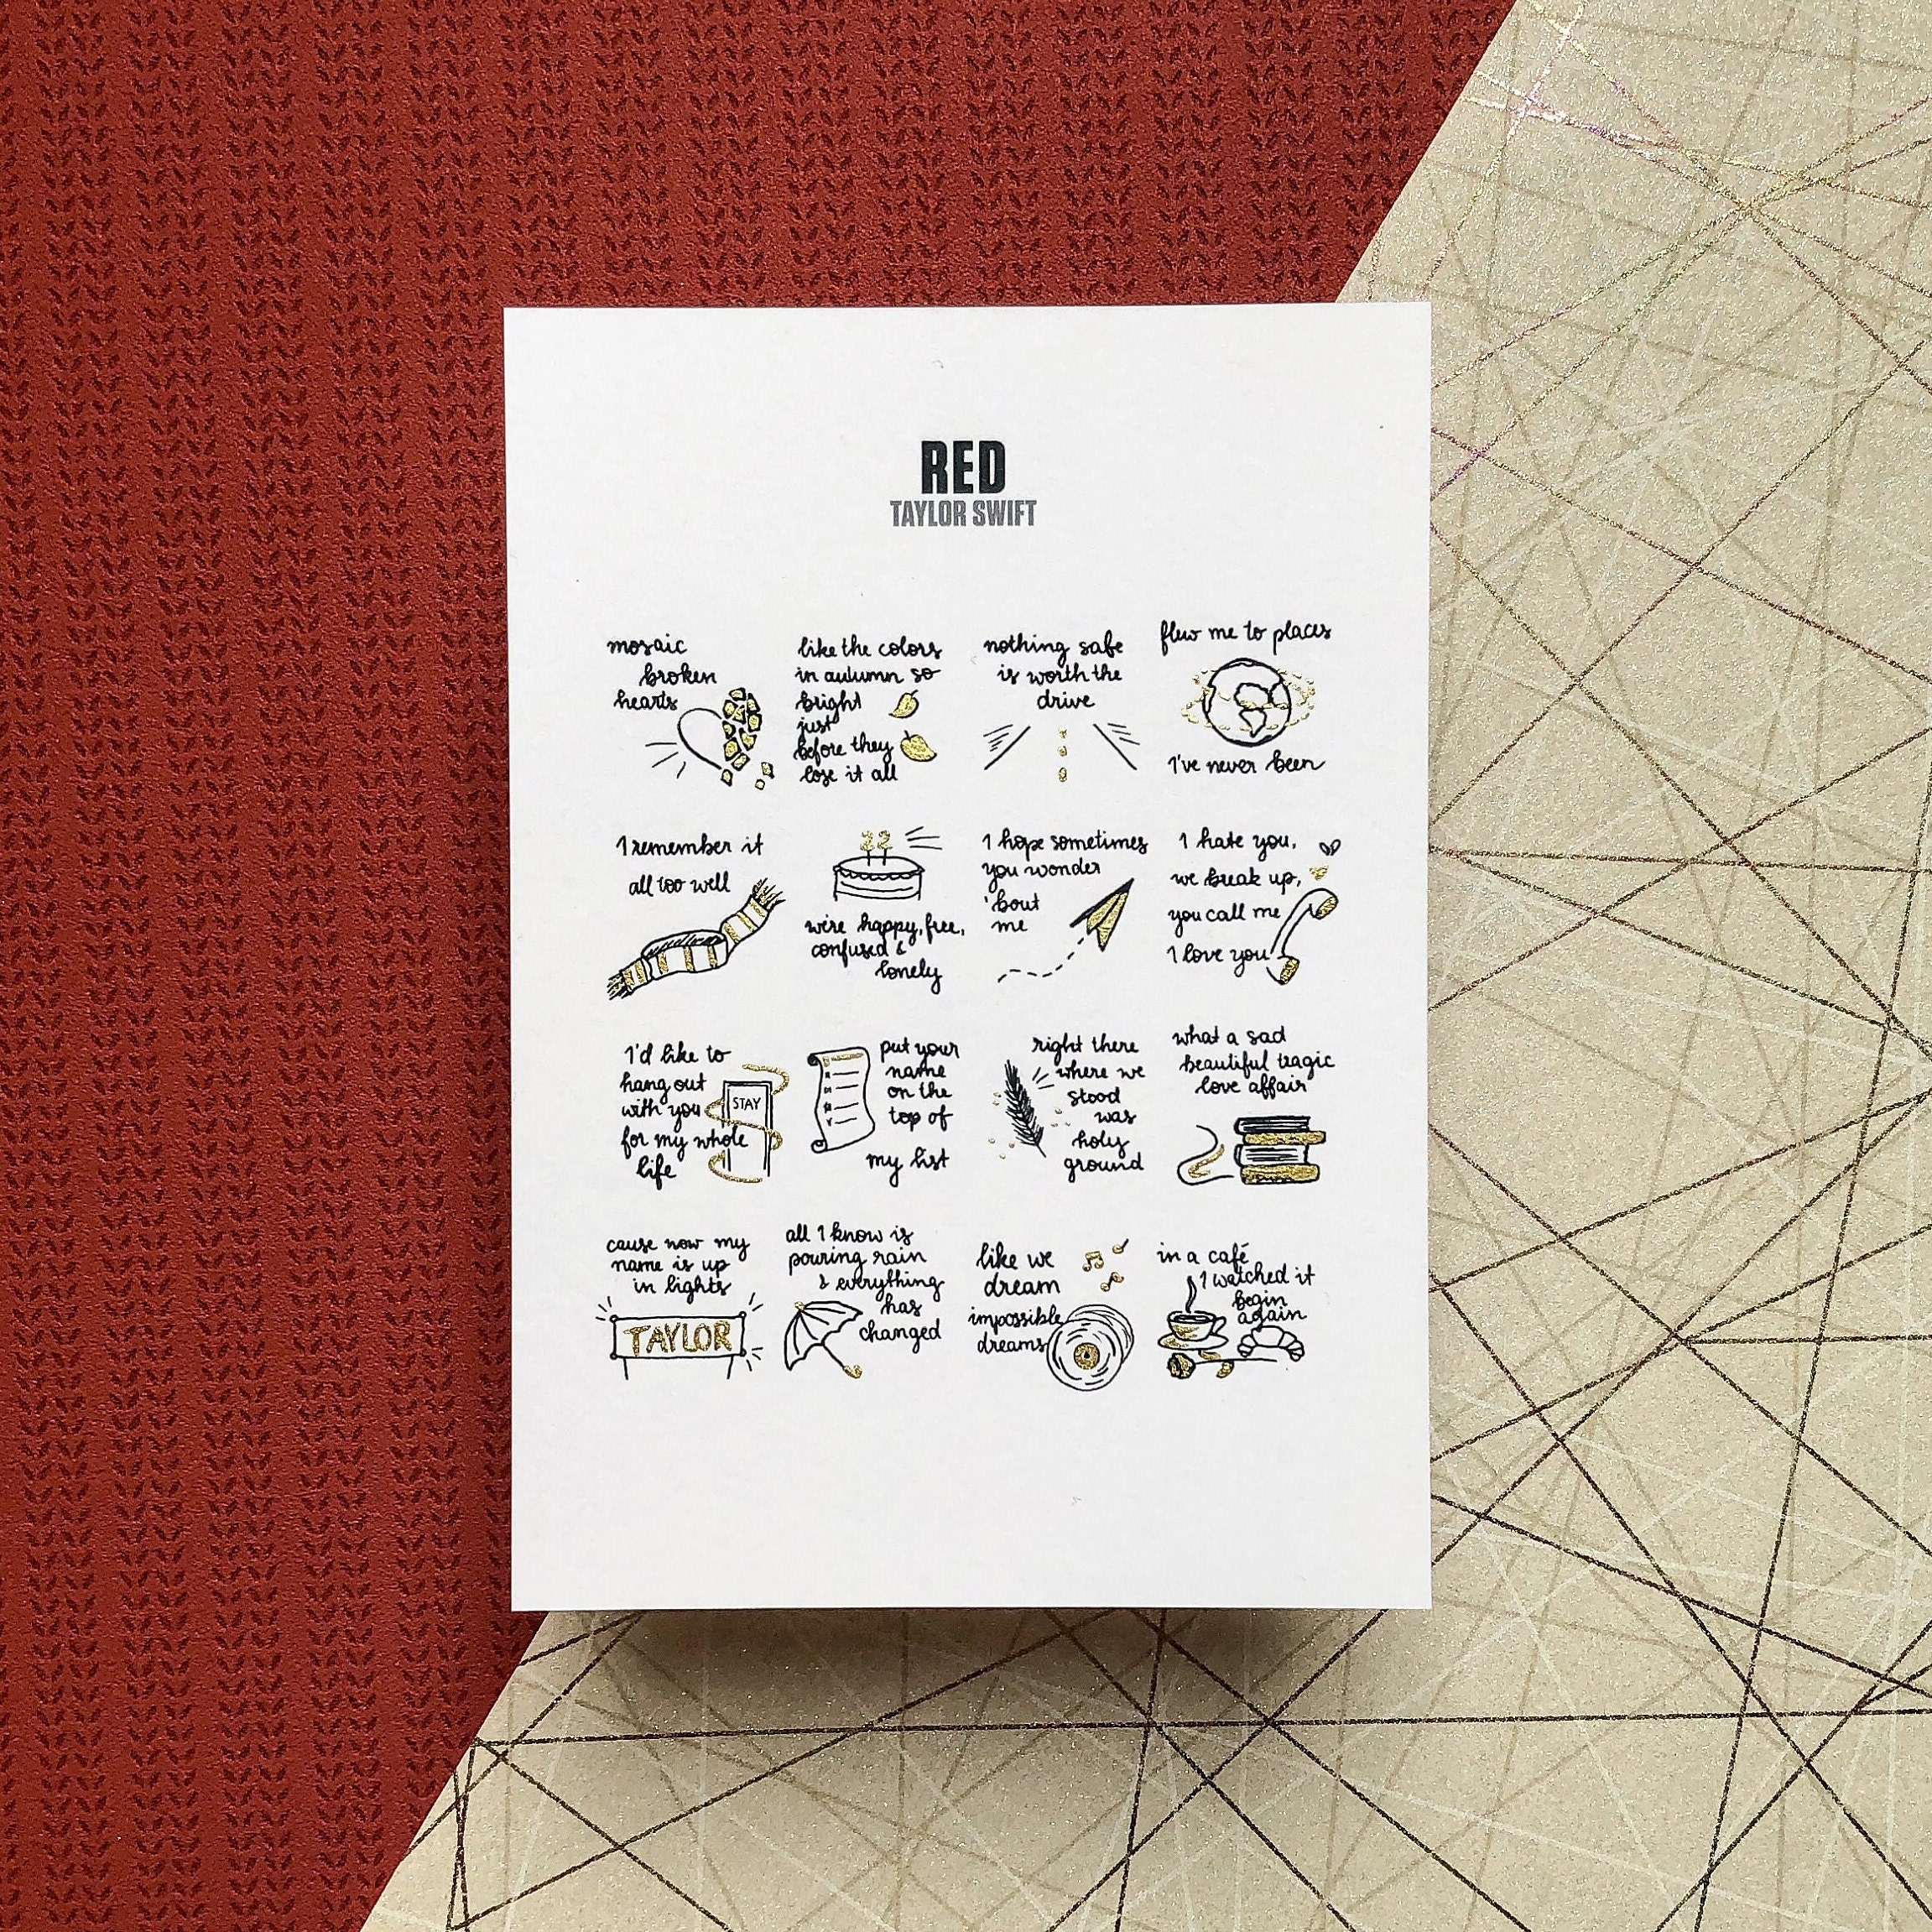 RED
TAYLOR SWIFT
mosaic
broken
hearts
like the colors
in autumn so
bright
just
before they
lose it all
nothing safe
is worth the
drive
flew me to places
I've never been
I remember it
all too well
22
we're happy, free,
confused &
lonely
I hope sometimes
you wonder
'bout
me
I hate you,
we break up,
you call me
I love you
I'd like to
hang out
with you
for my whole
life
STAY
put your
name
on the
top of
my list
right there
where we
stood
was
holy
ground
what a sad
beautiful tragic
love affair
cause now my
name is up
in lights
TAYLOR
all I know is
pouring rain
& everything
has
changed
like we
dream
impossible
dreams
in a café
I watched it
begin
again